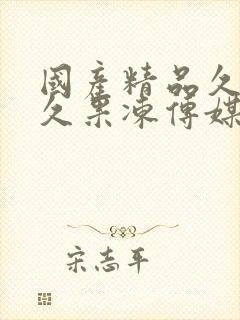 國產精品久
久果凍傳媒
宋志平